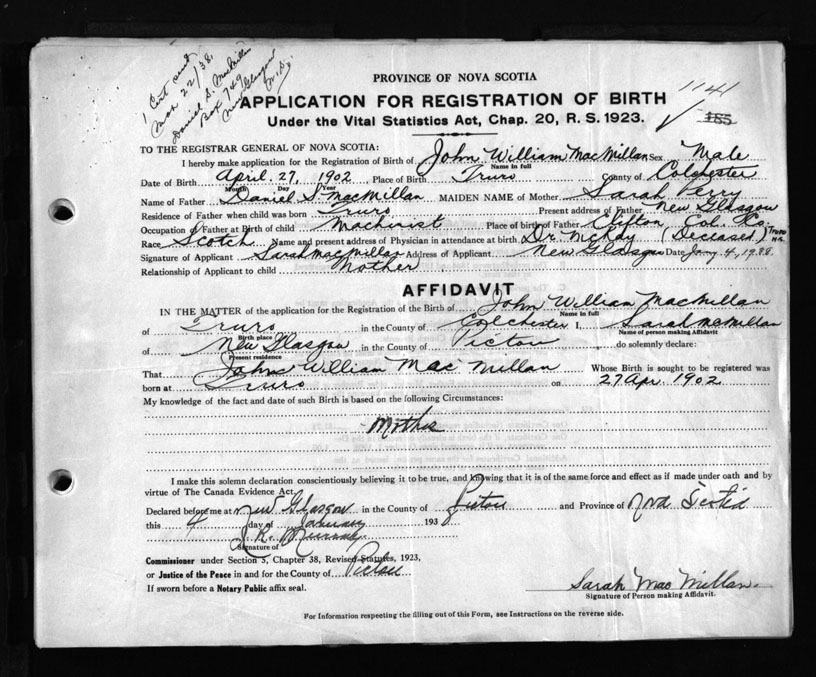 1 Cert sent
Mar 22/38
Daniel S. MacMillan
Box 749
New Glasgow
N.S.
PROVINCE OF NOVA SCOTIA
1141
APPLICATION FOR REGISTRATION OF BIRTH
185
Under the Vital Statistics Act, Chap. 20, R. S. 1923.
TO THE REGISTRAR GENERAL OF NOVA SCOTIA:
I hereby make application for the Registration of Birth of John William MacMillan Sex Male
Name in full
Date of Birth April 27, 1902 Place of Birth Truro County of Colchester
Month Day Year
Name of Father Daniel S MacMillan MAIDEN NAME of Mother Sarah Perry
Residence of Father when child was born Truro Present address of Father New Glasgow
Occupation of Father at Birth of child Machinist Place of birth of Father Clifton Col. Co.
Race Scotch Name and present address of Physician in attendance at birth Dr McKay (Deceased) Truro N.S.
Signature of Applicant Sarah MacMillan Address of Applicant New Glasgow Date Jany. 4, 1938.
Relationship of Applicant to child Mother
AFFIDAVIT
IN THE MATTER of the application for the Registration of the Birth of John William MacMillan
Name in full
of Truro in the County of Colchester I, Sarah McMillan
Birth place Name of person making Affidavit
of New Glasgow in the County of Pictou do solemnly declare:
Present residence
That John William Mac Millan Whose Birth is sought to be registered was
born at Truro on 27 Apr. 1902
My knowledge of the fact and date of such Birth is based on the following Circumstances:
Mother
I make this solemn declaration conscientiously believing it to be true, and knowing that it is of the same force and effect as if made under oath and by
virtue of The Canada Evidence Act.
Declared before me at New Glasgow in the County of Pictou and Province of Nova Scotia
this 4 day of January 1938
Signature of Murray
Commissioner under Section 5, Chapter 38, Revised Statutes, 1923,
or Justice of the Peace in and for the County of Pictou
If sworn before a Notary Public affix seal.
Sarah Mac Millan
Signature of Person making Affidavit.
For Information respecting the filling out of this Form, see Instructions on the reverse side.